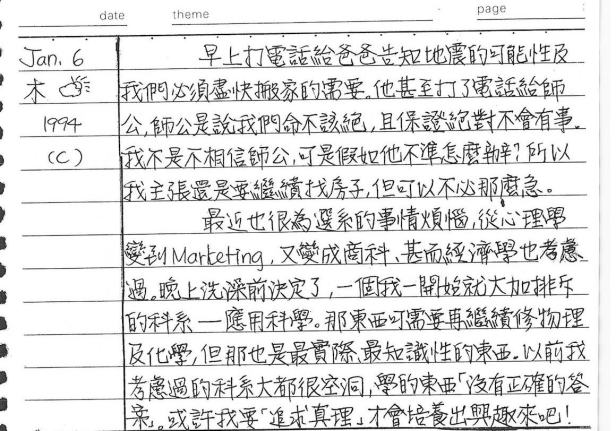 date theme page
Jan. 6 早上打電話給爸爸告知地震的可能性及
木 我們必須盡快搬家的需要。他甚至打了電話給師
1994 公,師公是說我們命不該絕,且保證絕對不會有事。
(C) 我不是不相信師公,可是假如他不準怎麼辦?所以
我主張還是要繼續找房子,但可以不必那麼急。
最近也很為選系的事情煩惱,從心理學
變到Marketing,又變成商科、甚而經濟學也考慮
過。晚上洗澡前決定了,一個我一開始就大加排斥
的科系—應用科學。那東西可需要再繼續修物理
及化學,但那也是最實際、最知識性的東西。以前我
考慮過的科系大都很空洞,學的東西「沒有正確的答
案」。或許我要「追求真理」才會培養出興趣來吧!